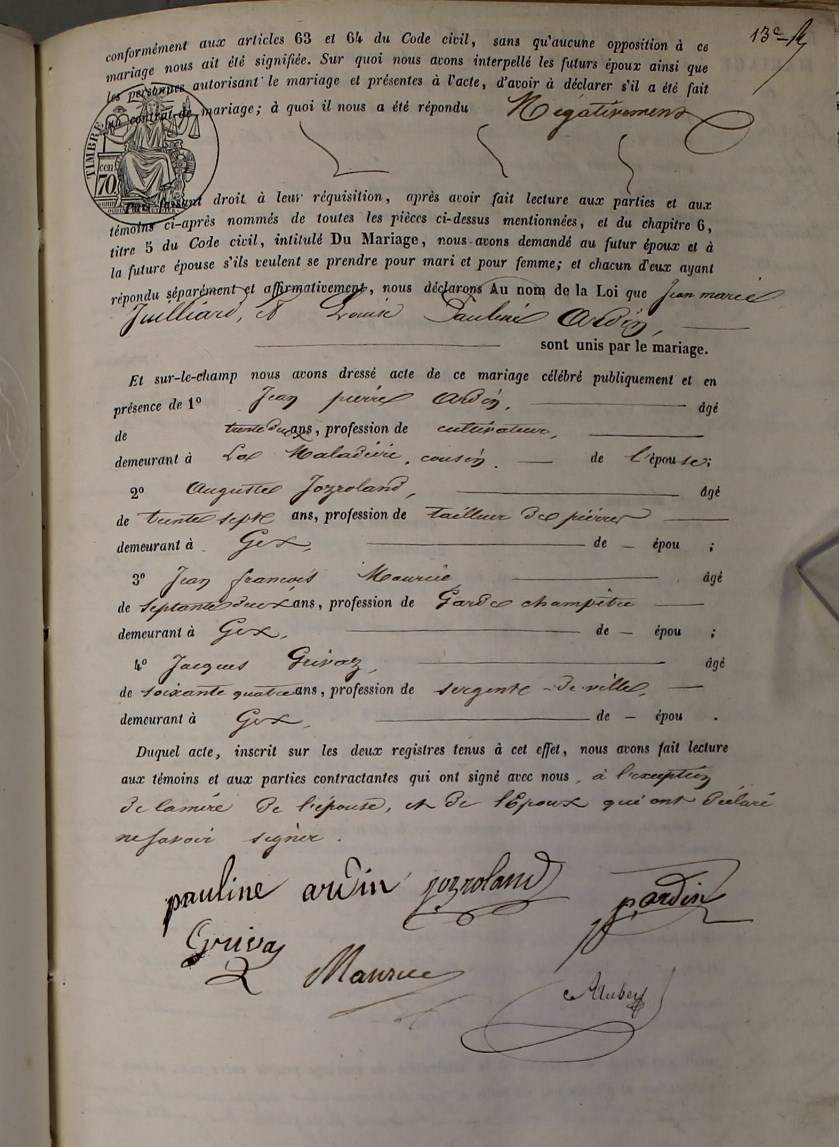 13e
conformément aux articles 63 et 64 du Code civil, sans qu'aucune opposition à ce
mariage nous ait été signifiée. Sur quoi nous avons interpellé les futurs époux ainsi que
les personnes autorisant le mariage et présentes à l'acte, d'avoir à déclarer s'il a été fait
un contrat de mariage; à quoi il nous a été répondu Négativement
TIMBRE
cen
70
Puis faisant droit à leur réquisition, après avoir fait lecture aux parties et aux
témoins ci-après nommés de toutes les pièces ci-dessus mentionnées, et du chapitre 6,
titre 5 du Code civil, intitulé Du Mariage, nous avons demandé au futur époux et à
la future épouse s'ils veulent se prendre pour mari et pour femme; et chacun d'eux ayant
répondu séparément et affirmativement, nous déclarons Au nom de la Loi que Jean marie
Juilliard, et Louise Pauline Ardin,
sont unis par le mariage.
Et sur-le-champ nous avons dressé acte de ce mariage célébré publiquement et en
présence de 1º Jean pierre Ardin, âgé
de trente deux ans, profession de cultivateur,
demeurant à La Maladière, cousin de l'épouse;
2º Auguste Jozroland, âgé
de trente sept ans, profession de tailleur de pierres
demeurant à Gex, de – épou ;
3º Jean françois Maurice, âgé
de septante deux ans, profession de Garde champêtre
demeurant à Gex, de – épou ;
4º Jacques Grivaz, âgé
de soixante quatre ans, profession de sergent de ville,
demeurant à Gex, de – épou .
Duquel acte, inscrit sur les deux registres tenus à cet effet, nous avons fait lecture
aux témoins et aux parties contractantes qui ont signé avec nous, à l'exception
de la mère de l'épouse, et de l'Epoux qui ont déclaré
ne savoir signer.
pauline ardin jozroland pardin
Grivaz Maurice